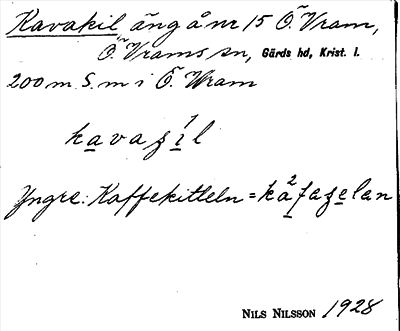 Kavakil äng å nr 15 Ö. Vram,
Ö. Vrams sn, Gärds hd, Krist. l.
200 m. S. m i Ö. Wram
Yngre: Kaffekitteln =
NILS NILSSON 1928